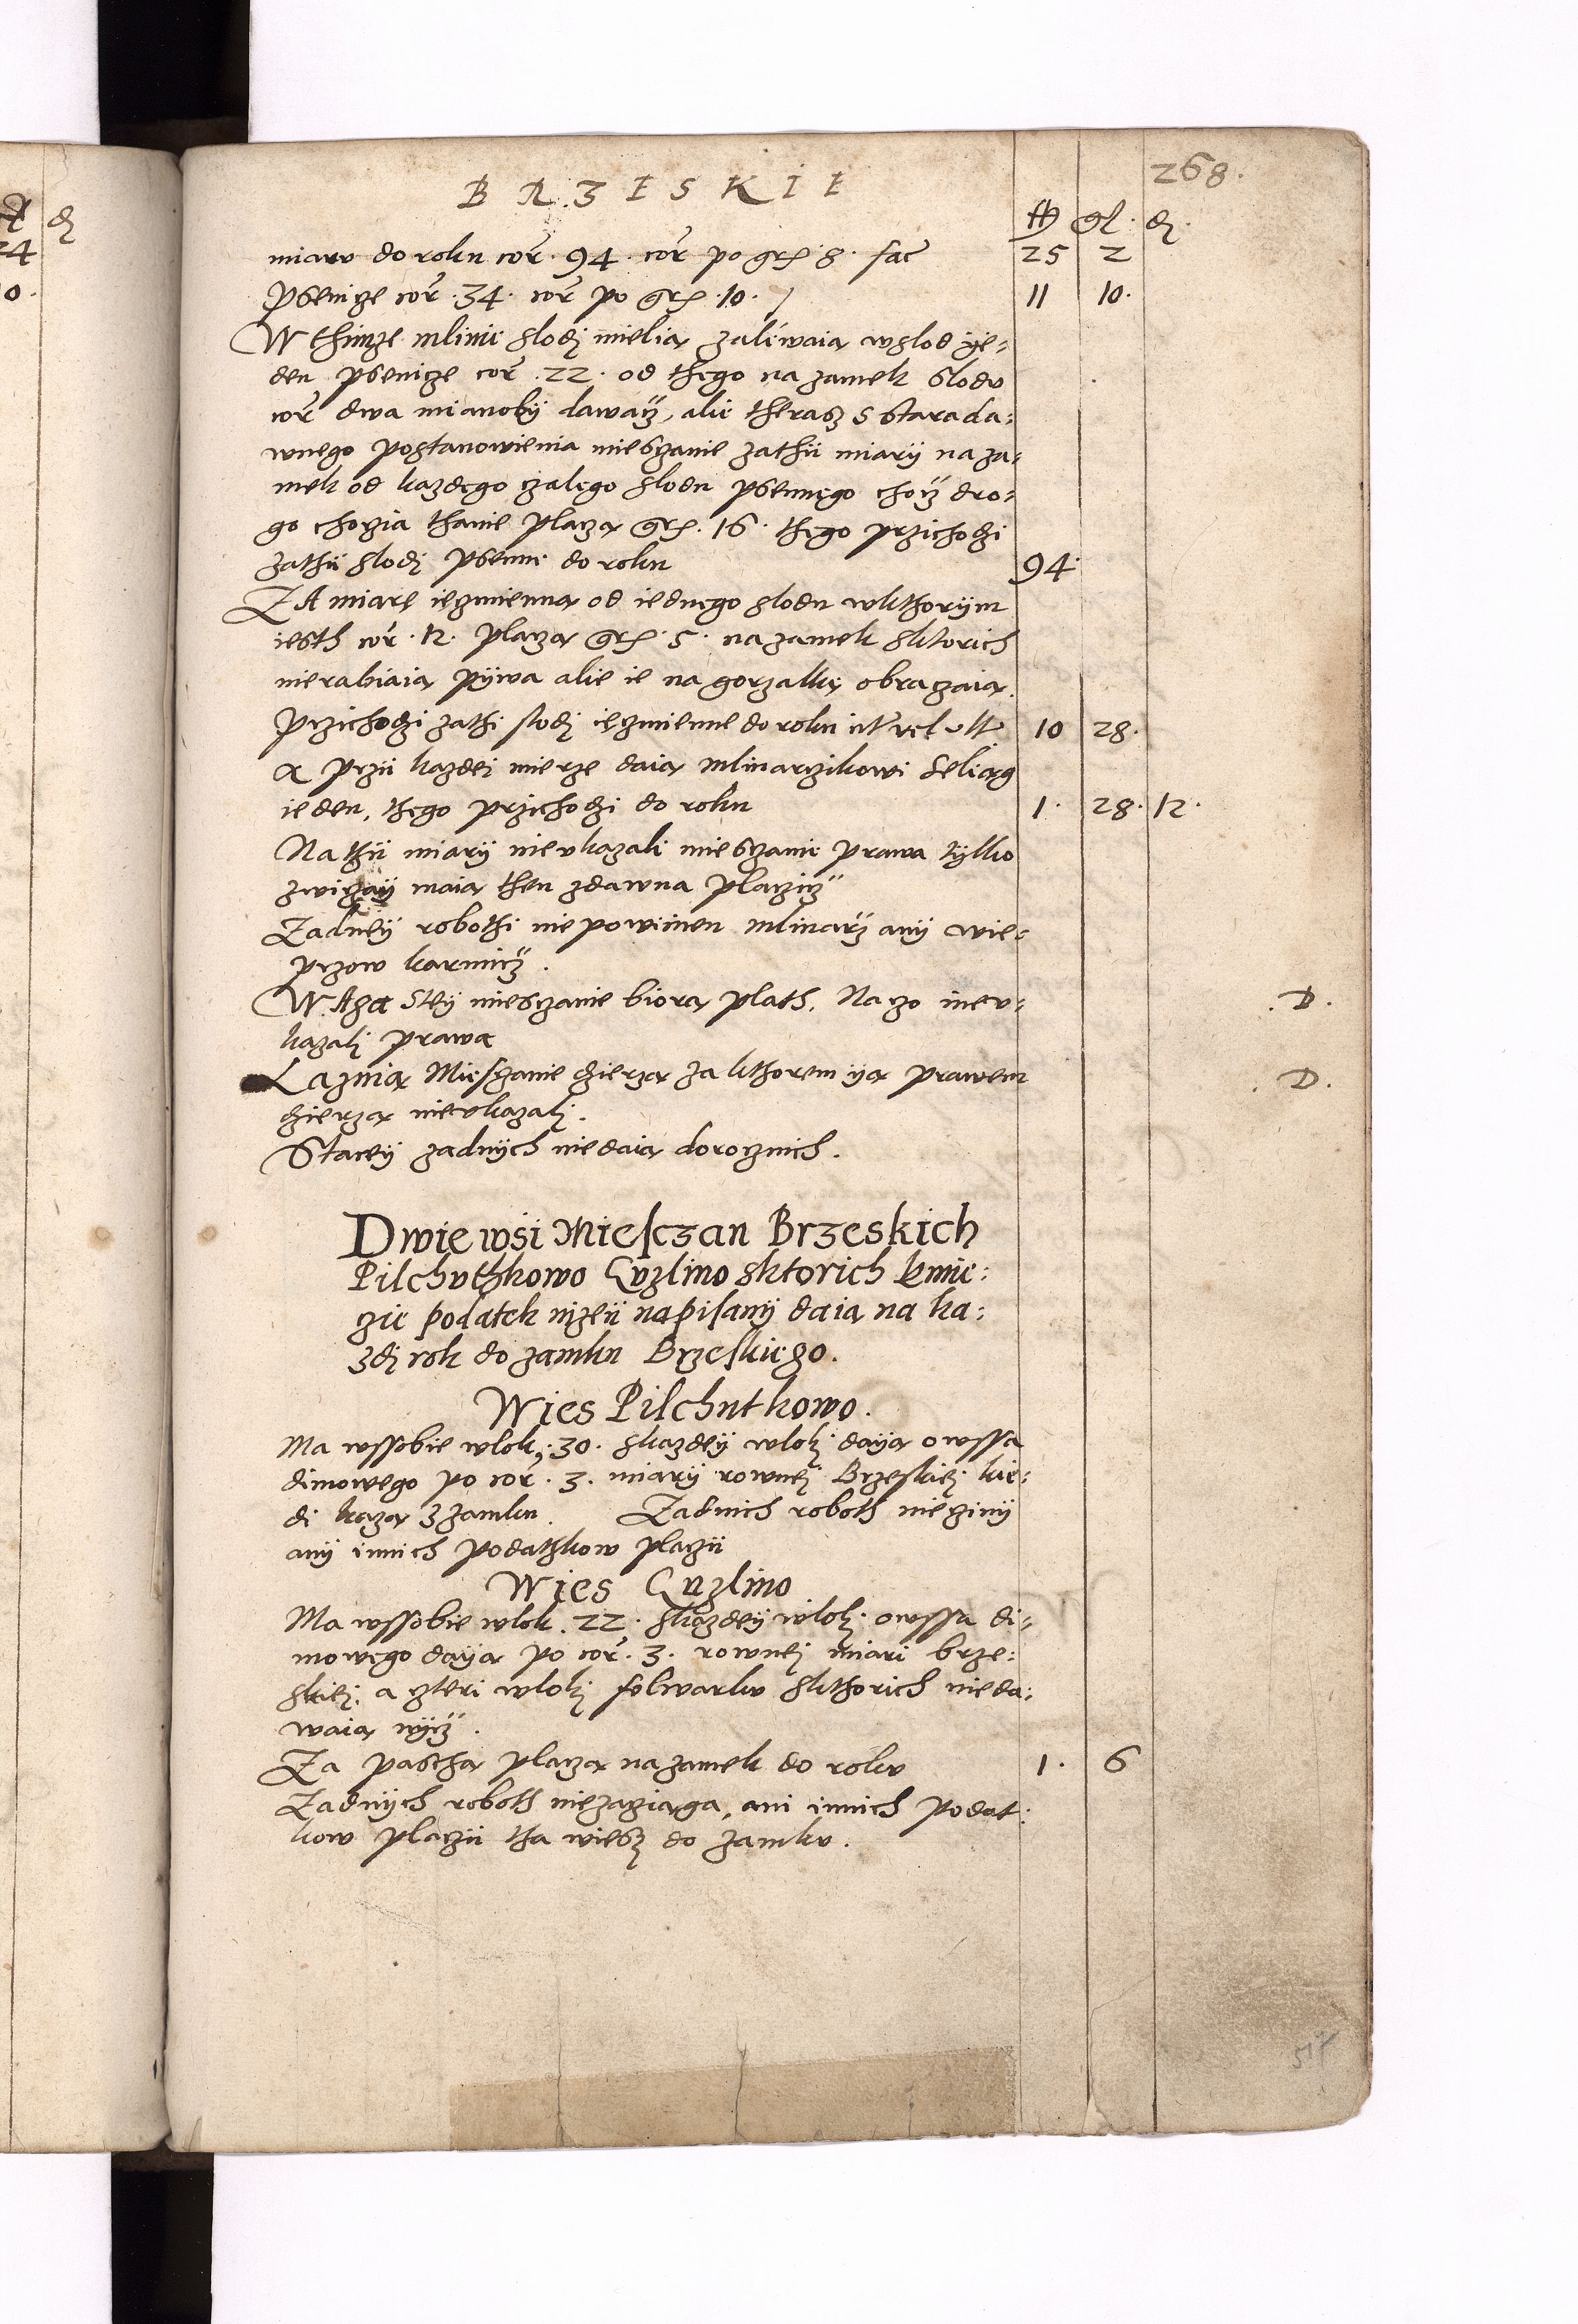 268.
B R Z E S K I E
fl gr. d.
miarv do rokv cor. 94. cor po gr. 8. fac 25 2
Psenicze cor. 34. cor po gr. 10. 11 10.
W thimze mlinie slodj mielią zaliewaią wslod ye-
den psenicze cor. 22. od thego na zamek slodv
cor dwa mianoby dawacz, alie therasz s starada:
wnego postanowienia miesczanie zathii miary na za:
mek od kazdego czalego slodu psennego chocz dro:
go choczia thanie placzą gr. 16. thego przichodzi
zathii slodj psenni do roku 94.
ZA miarę ięczmienną od iednego slodu wkthorym
iesth cor. 12. placzą gr. 5. na zamek sktorich
nierabiaią pywa alie ie na gorzalkę obraczaią.
Przichodzi zathi slodj ięczmienne do roku 10 28.
a przii kazdei mierze daią mlinarzikowi seliąg
ieden, thego przichodzi do roku 1. 28. 12.
Na thii miary nievkazali miesczanie prawa tylko
zwiczay maią then zdawna placzicz
Zadney robothi niepowinien mlinarz any wie-
przow karmicz.
WAga Stey miesczanie biorą plath, Naczo niev- D.
kazalj prawa
Laznią Miesczanie dzierzą za kthorem yą prawem D.
dzierzą nievkazalj.
Stacey zadnych niedaią dorocznich.
Dwie wsi Miesczan Brzeskich
Pilchvthkowo Guzlino sktorich kmie:
czie podatek nizeii napisany daią na ka:
zdj rok do zamku Brzeskiego.
Wies Pilchutkowo.
Ma wssobie wlok. 30. skazdey wlokj daya owssa
dimowego po cor. 3. miary rownej Brzeskiej kie:
di kazą z zamku. Zadnich roboth nieciny
any innich podathkow placzii
Wies Guzlino
Ma wssobie wlok. 22. skazdey wlokj owssa di-
mowego dayą po cor. 3. rownej miari brze:
skiej. a czteri wlokj folwarkv skthorich nieda:
waią nycz.
Za pastha placzą na zamek do rokv 1. 6
Zadnych roboth niezacziąga, ani innich podat:
kow placzii tha wiesz do zamkv.